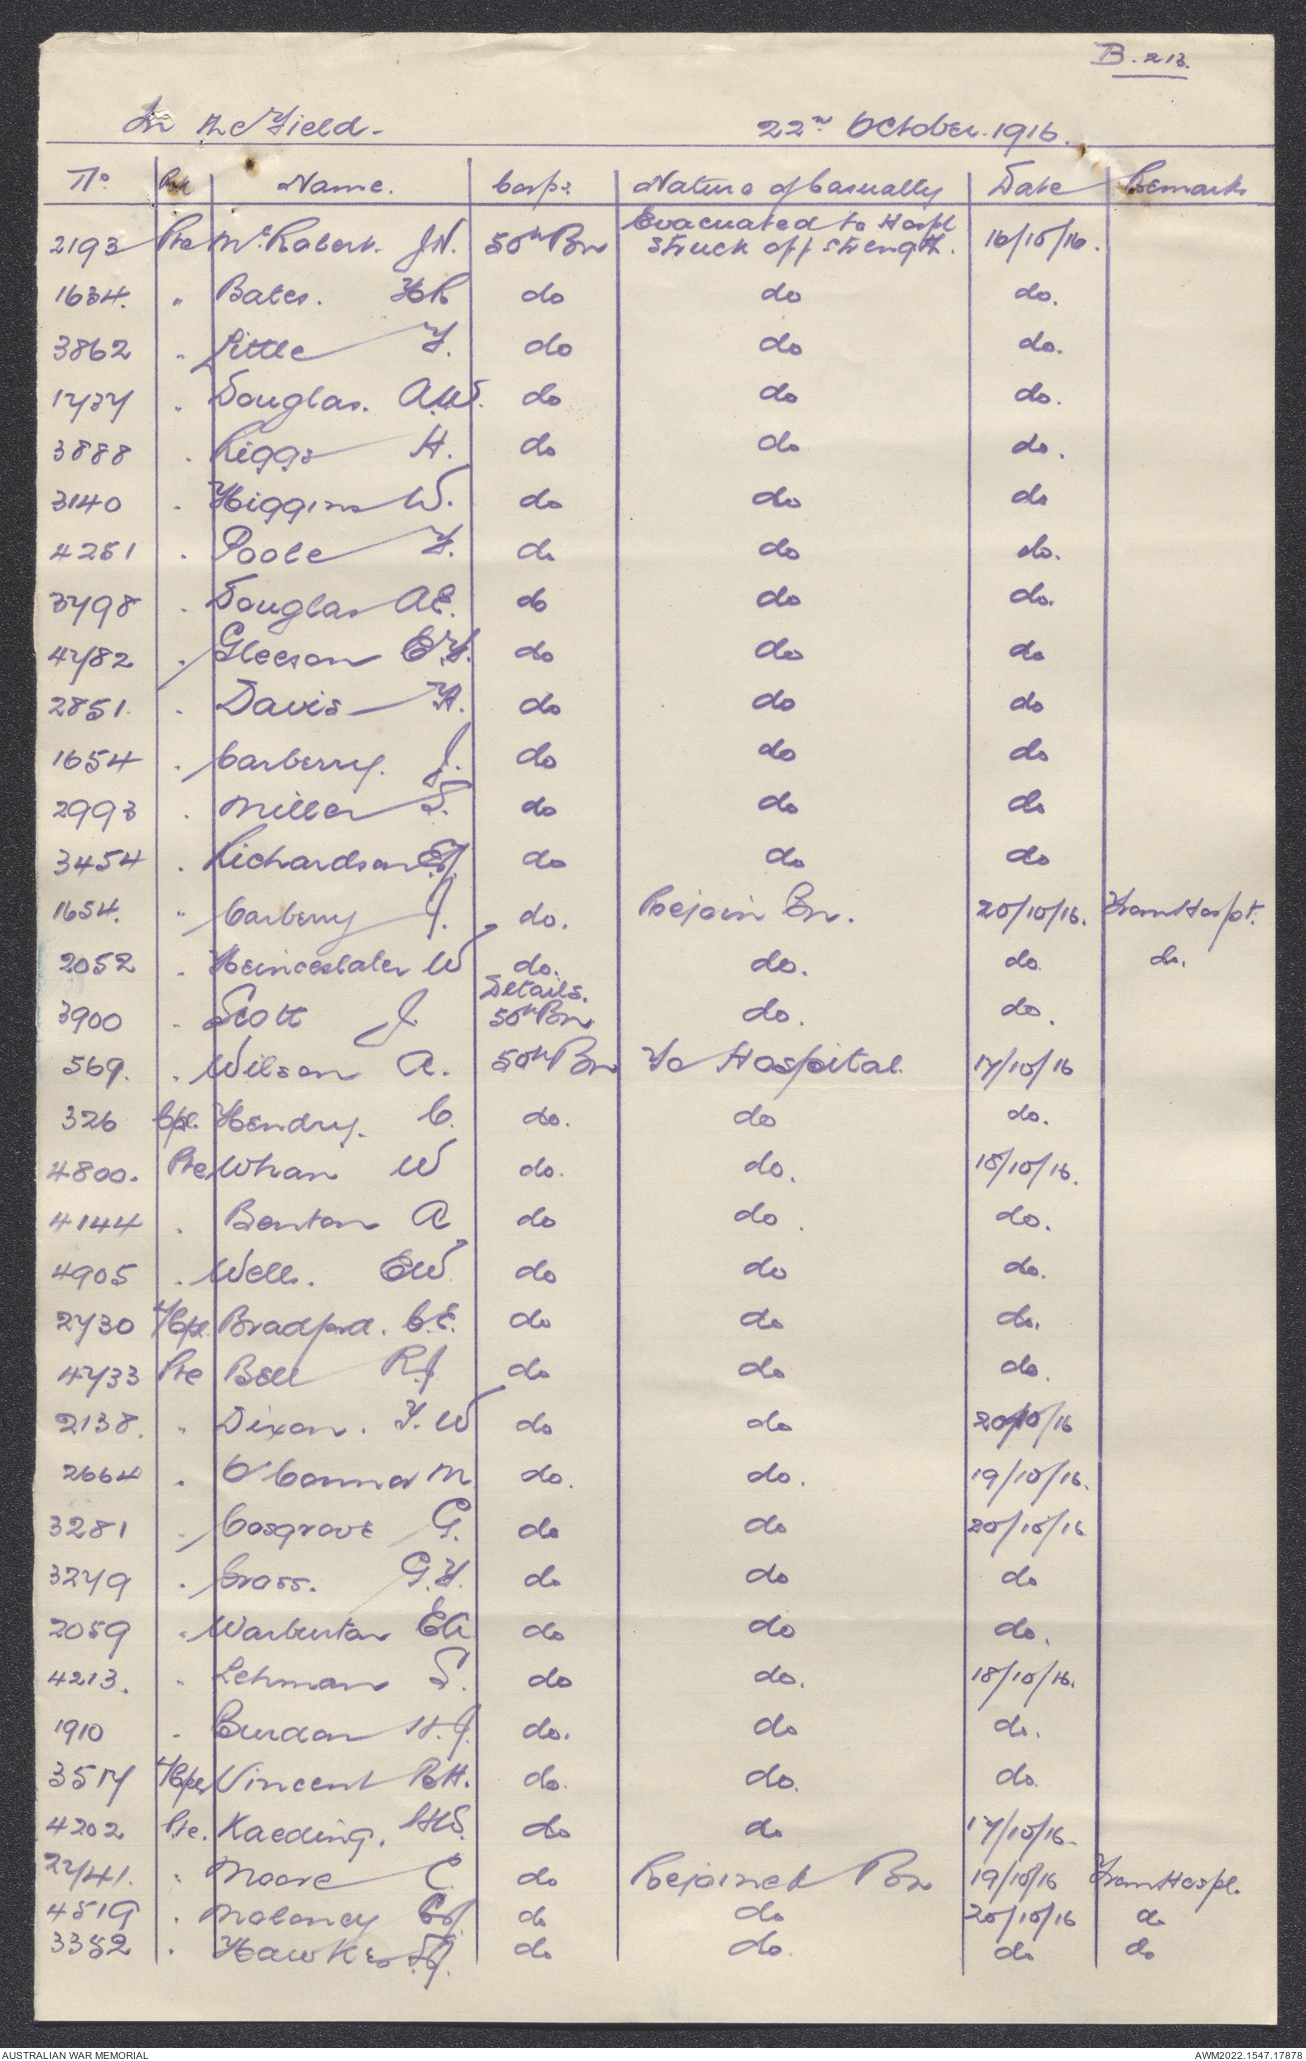 B. 213.
In the Field. 22nd October. 1916.
No. Rk Name. Corps. Nature of Casualty Date Remarks
Evacuated to Hospl
2193 Pte McRobert. J.N. 50th Bn Struck off strength. 16/10/16.
1634. " Bates. HR do do do.
3862 " Little F. do do do.
1737 " Douglas. A.W. do do do.
3888 " Riggs H. do do do.
3140 " Higgins W. do do do
4251 " Poole F. do do do.
3798 " Douglas AE. do do do.
4782 " Gleeson E.F. do do do
2851. " Davis H. do do do
1654 " Carberry. J. do do do
2993 " Miller S. do do do
3454 " Richardson EJ. do do do
1654. " Carberry J. do. Rejoin Bn. 20/10/16. From Hospt.
2052 " W do. do. do. do.
Details.
3900 " Scott J. 50th Bn do. do.
569. " Wilson A. 50th Bn To Hospital. 17/10/16
326 Cpl. Hendry. C. do. do do.
4800. Pte Whan W do. do. 18/10/16.
4144 " Benton A do do. do.
4905 " Wells. EW. do do do.
2730 T/Cpl. Bradford. C.E. do do do.
4733 Pte Bell R.J. do do do.
2138. " Dixon. F. W do do 20/10/16
2664 " O'Connor M do. do. 19/10/16.
3281 " Cosgrove G. do do 20/10/16
3279 " Cross. G.F. do do do
2059 " Warburton EA do do do.
4213. " Lehmann S. do do. 18/10/16.
1910 " Burdon H.J. do. do do.
3517 T/Cpl Vincent RH. do. do. do.
4202 Pte. Kaeding. do do 17/10/16.
2741. " Moore C. do Rejoined Bn 19/10/16 From Hospl.
4519 " Moloney do do 20/10/16 do
3352 " Hawkes do do. do do
AUSTRALIAN WAR MEMORIAL AWM2022.1547.17878